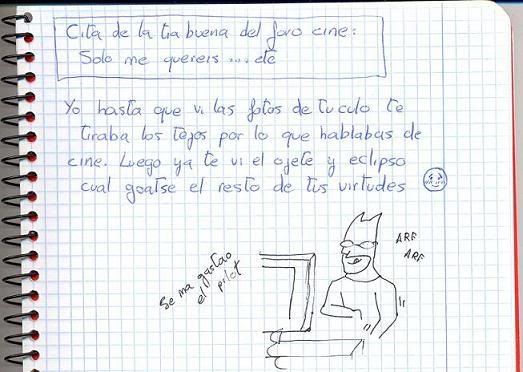 Cita de la tia buena del foro cine:
Solo me quereis ... etc
Yo hasta que vi las fotos de tu culo te
tiraba los tejos por lo que hablabas de
cine. Luego ya te vi el ojete y eclipso
cual goatse el resto de tus virtudes
ARF
ARF
Se ma gastao
el pilot